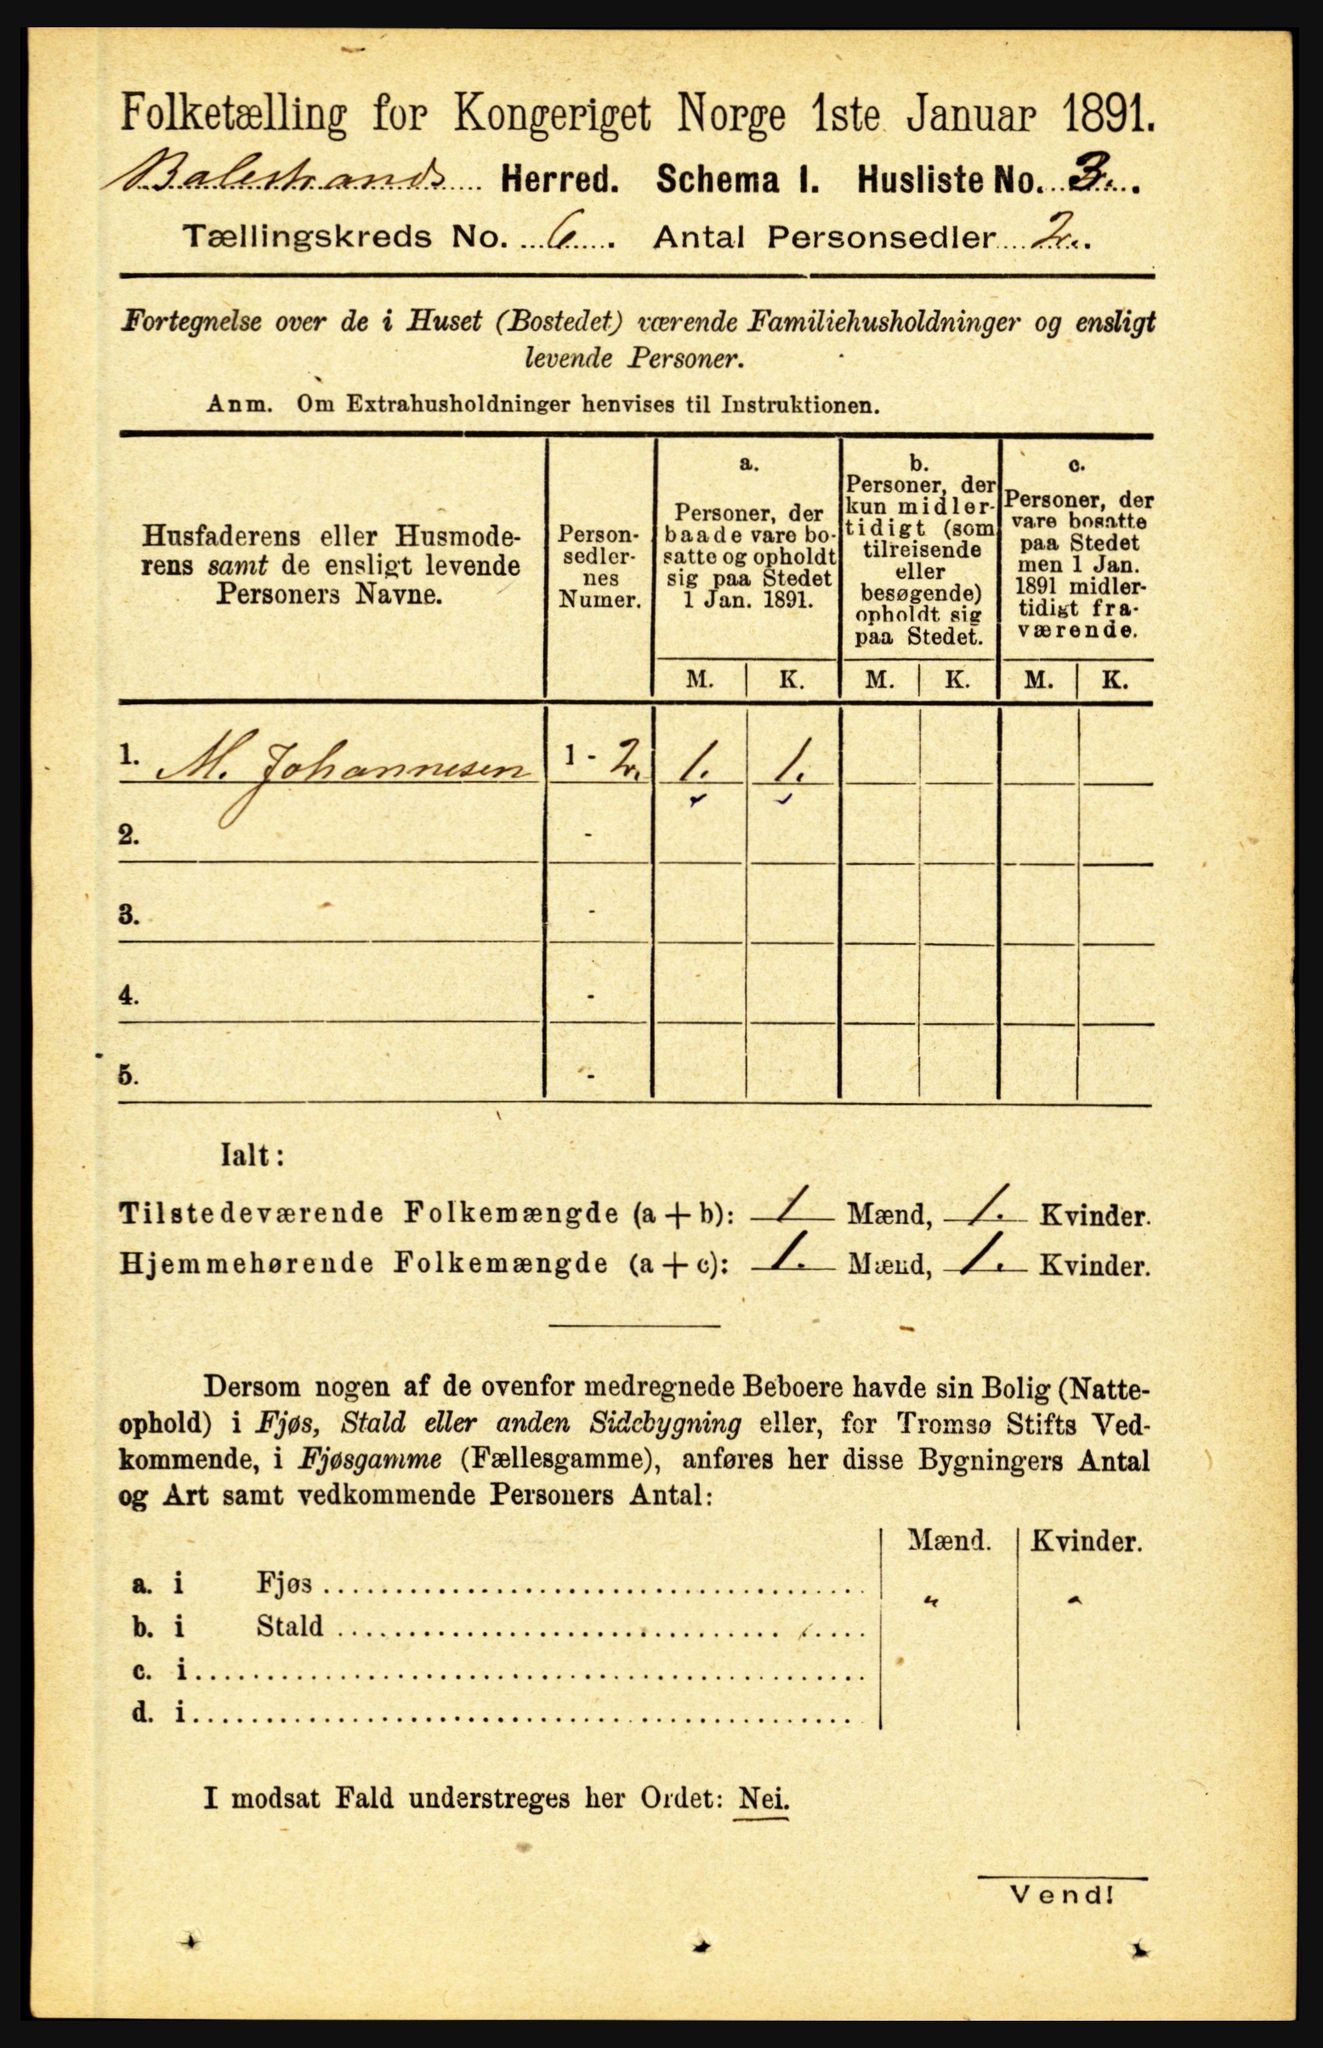 Folketælling for Kongeriget Norge 1ste Januar 1891.
Balestrands Herred. Schema 1. Husliste No. 3.
Tællingskreds No. 6. Antal Personsedler 2.
Fortegnelse over de i Huset (Bostedet) værende Familiehusholdninger og ensligt
levende Personer.
Anm. Om Extrahusholdninger henvises til Instruktionen.
Husfaderens eller Husmode-
rens samt de ensligt levende
Personers Navne.
Person-
sedler-
nes
Numer.
a.
Personer, der
baade vare bo-
satte og opholdt
sig paa Stedet
1 Jan. 1891.
b.
Personer, der
kun midler-
tidigt (som
tilreisende
eller
besøgende)
opholdt sig
paa Stedet.
c.
Personer, der
vare bosatte
paa Stedet
men 1 Jan.
1891 midler-
tidigt fra-
værende.
M. K. M. K. M. K.
1. M. Johannesen 1 - 2. 1. 1.
2. -
3. -
4. -
5. -
Ialt:
Tilstedeværende Folkemængde (a + b): 1 Mænd, 1. Kvinder.
Hjemmehørende Folkemængde (a + c): 1. Mænd, 1. Kvinder.
Dersom nogen af de ovenfor medregnede Beboere havde sin Bolig (Natte-
ophold) i Fjøs, Stald eller anden Sidebygning eller, for Tromsø Stifts Ved-
kommende, i Fjøsgamme (Fællesgamme), anføres her disse Bygningers Antal
og Art samt vedkommende Personers Antal:
Mænd. Kvinder.
a. i Fjøs
b. i Stald
c. i
d. i
I modsat Fald understreges her Ordet: Nei.
Vend!